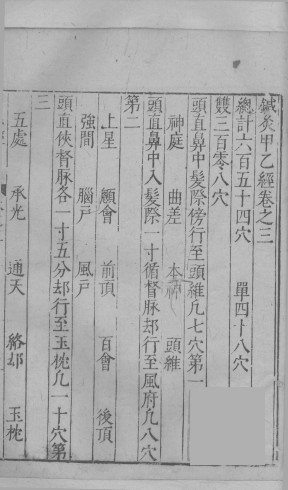 鍼灸甲乙經卷之三
總計六百五十四穴 單四十八穴
雙三百零八穴
頭直鼻中髮際傍行至頭維凡七穴第一
神庭 曲差 本神 頭維
頭直鼻中入髮際一寸循督脉却行至風府凡八穴
第二
上星 顖會 前頂 百會 後頂
強間 腦戶 風戶
頭直俠督脉各一寸五分却行至玉枕凡一十穴第
三
五處 承光 通天 絡却 玉枕